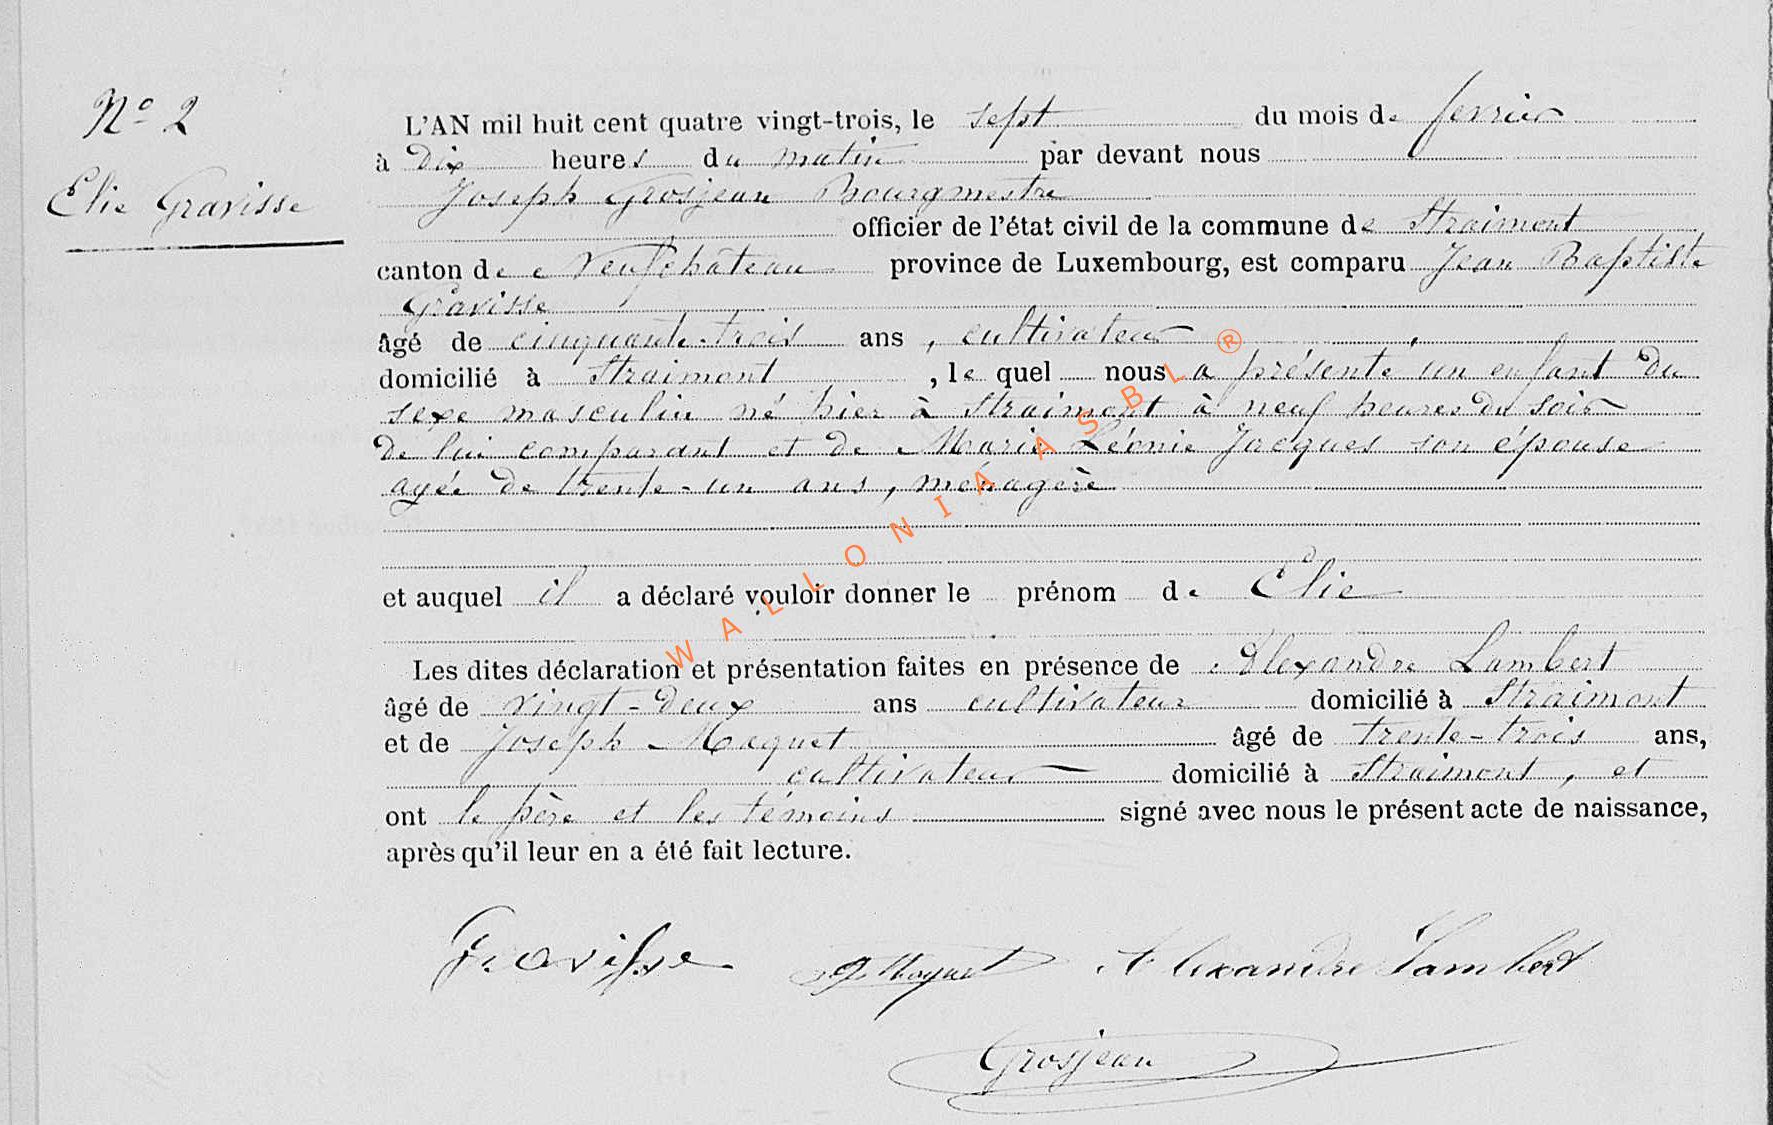 N° 2
Elie Gravisse
L'AN mil huit cent quatre vingt-trois, le sept du mois de fevrier
à dix heures du matin par devant nous
Joseph Grosjean Bourgmestre
officier de l'état civil de la commune de Straimont
canton de Neufchâteau province de Luxembourg, est comparu Jean Baptiste
Gravisse
âgé de cinquante-trois ans, cultivateur
domicilié à Straimont, le quel nous a présenté un enfant du
sexe masculin né hier à Straimont à neuf heures du soir
de lui comparant et de Marie Léonie Jacques son épouse
agée de trente-un ans, ménagère
et auquel il a déclaré vouloir donner le prénom de Elie
Les dites déclaration et présentation faites en présence de Alexandre Lambert
âgé de vingt-deux ans cultivateur domicilié à Straimont
et de Joseph Maquet âgé de trente-trois ans,
cultivateur domicilié à Straimont, et
ont le père et les témoins signé avec nous le présent acte de naissance,
après qu'il leur en a été fait lecture.
Gravisse J Maquet Alexandre Lambert
Grosjean
WALLONIA ASBL ®